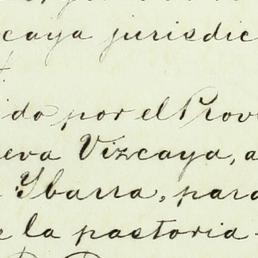 caya jurisdic
ido por el Prov
eva Vizcaya, a
Ybarra, para
e la pastoria